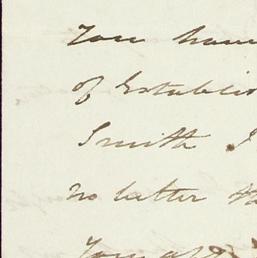 You have
of Establis
Smith I
no letter th